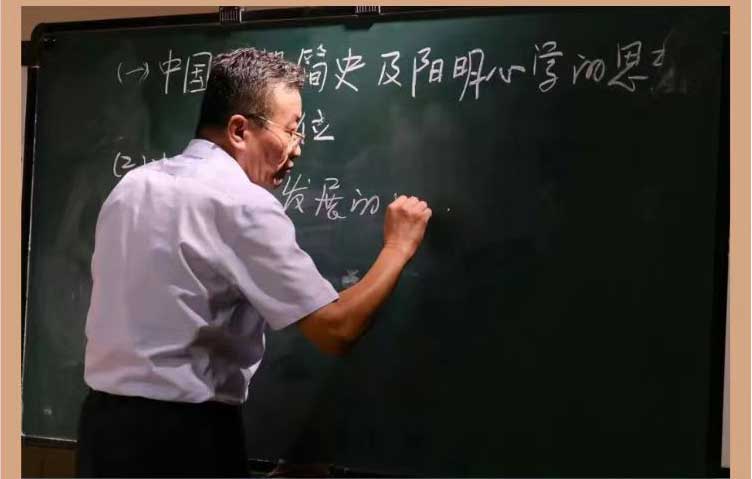 (一)中国简史及阳明心学的思
位
(2)
发展的